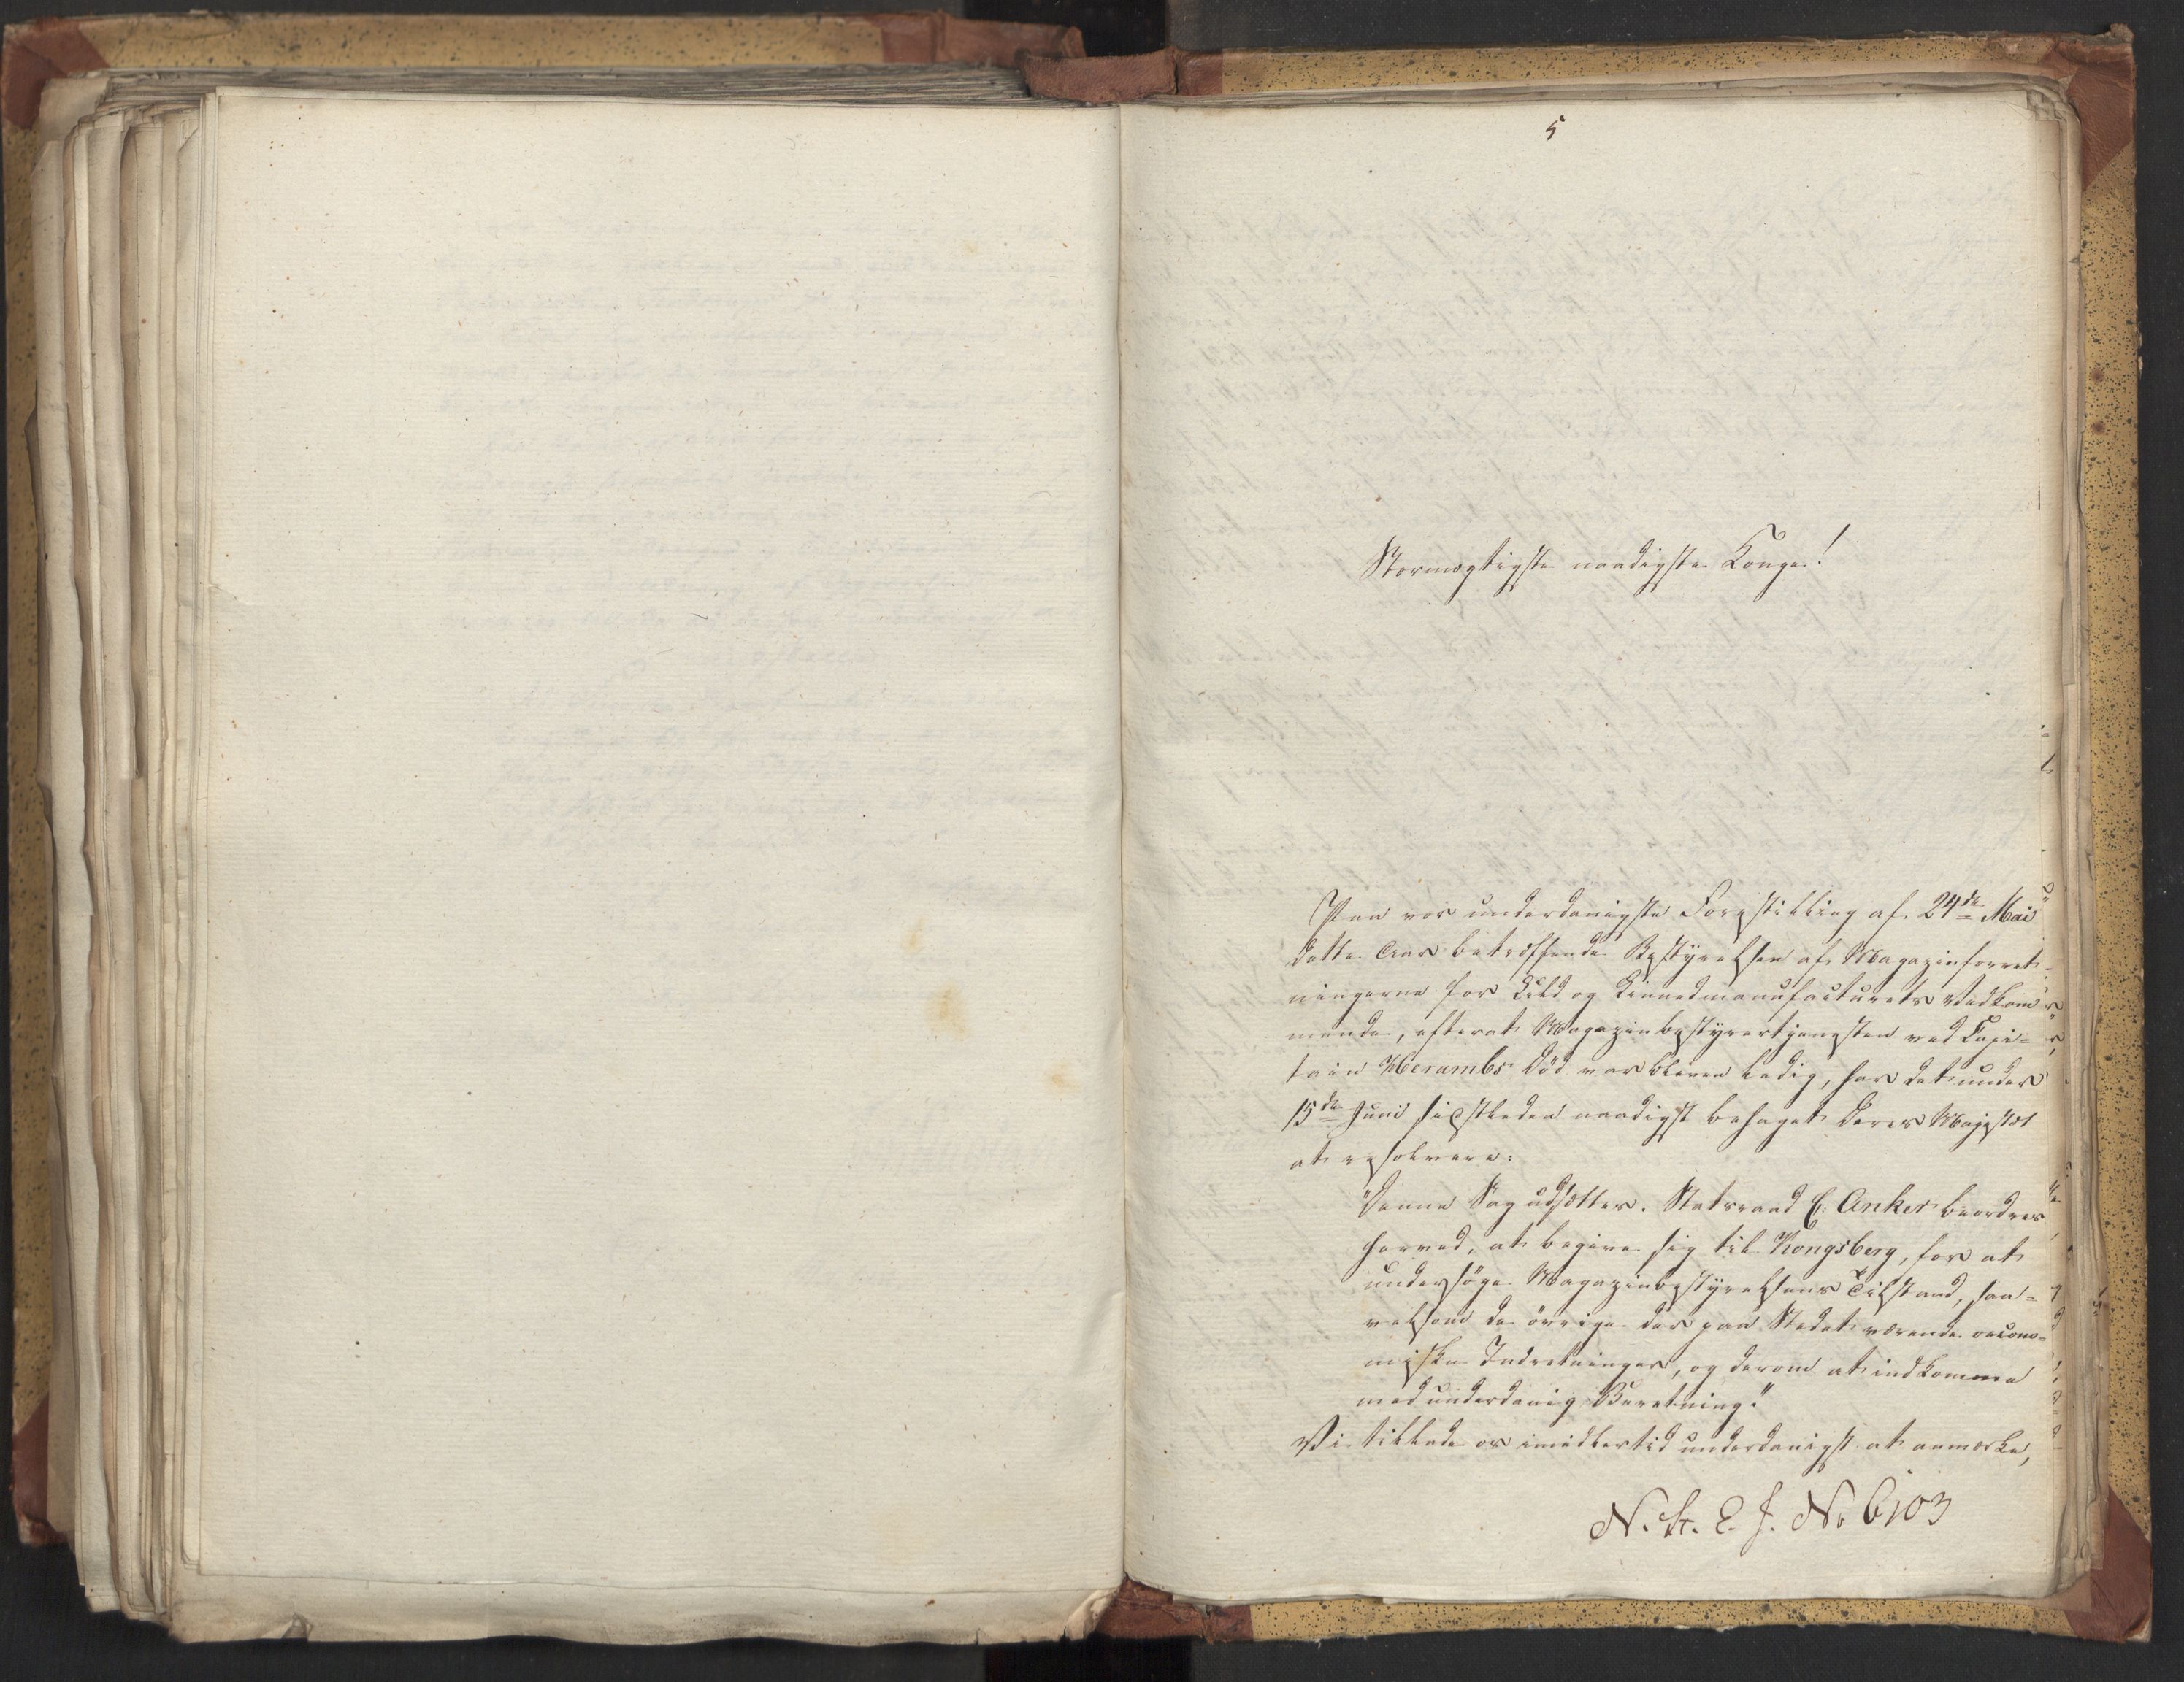 5
Stormægtigste naadigste Konge!
Paa vor underdanigste Forestilling af 24de Mai
dette Aar betræffende Bestyrelsen af Magazinforret-
ningerne for Uld og Linnedmanufacturets Vedkom-
mende, efterat Magazinbestyrertjenesten ved Capi-
tain Herambs Död var bleven ledig, har det under
15de Juni sidstleden naadigst behaget Deres Majestæt
at resolvere:
"Denne Sag udsættes. Statsraad C: Anker beordres
herved, at begive sig til Kongsberg, for at
undersöge Magazinbestyrelsens Tilstand, saa-
velsom de övrige der paa Stedet værende oecono-
miske Indretninger, og derom at indkomme
med underdanig Beretning."
Vi tillade os imidlertid underdanigst at anmærke,
N. . E. J. No 6103